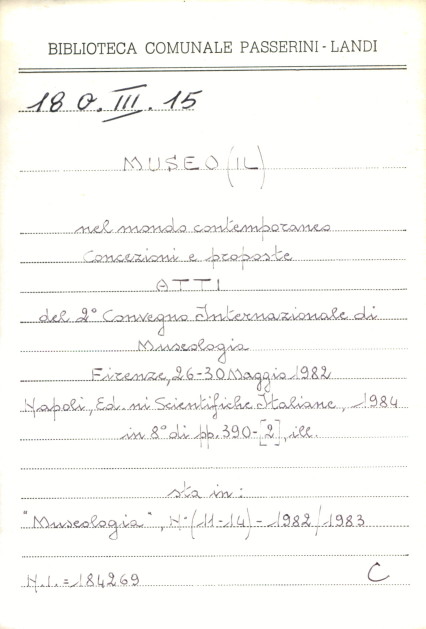 BIBLIOTECA COMUNALE PASSERINI - LANDI
18 O. III. 15
MUSEO (IL)
nel mondo contemporaneo
Concezioni e proposte
ATTI
del 2° Convegno Internazionale di
Museologia
Firenze, 26-30 Maggio 1982
Napoli, Ed. ni Scientifiche Italiane, 1984
in 8° di pp. 390-[2], ill.
sta in:
"Museologia", N. (11-14) - 1982/1983
N.I. = 184269
C